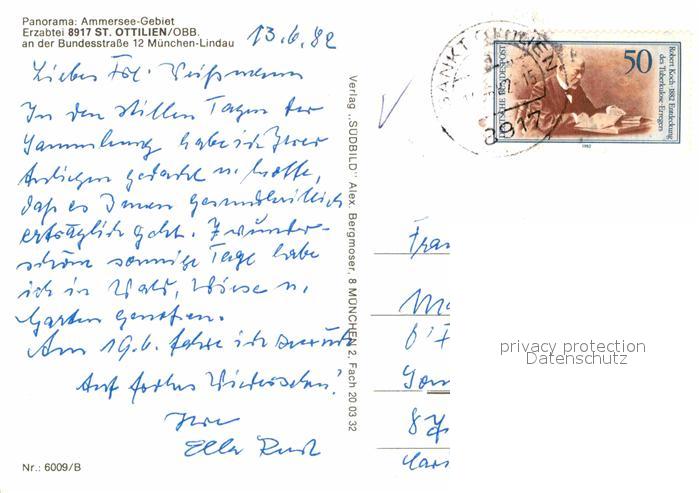 Panorama: Ammersee-Gebiet
Erzabtei 8917 ST. OTTILIEN/OBB.
an der Bundesstraße 12 München-Lindau
13.6.82
Liebes Frl. Weißmann
In den stillen Tagen der
Sammlung habe ich Ihrer
gedacht u. hoffe,
daß es Ihnen gesundheitlich
erträglich geht. 7 wunder-
schöne sonnige Tage habe
ich in Wald, Wiese u.
Garten genossen.
Am 19.6. fahre ich zurück
Auf frohes Wiedersehen!
Ihre
Ella
Nr.: 6009/B
Verlag „SÜDBILD" Alex. Bergmoser, 8 MÜNCHEN 2, Fach 20 03 32
SANKT OTTILIEN
8917
DEUTSCHE BUNDESPOST
50
Robert Koch · 1882 Entdeckung
des Tuberkulose-Erregers
1982
Frau
8
privacy protection
Datenschutz